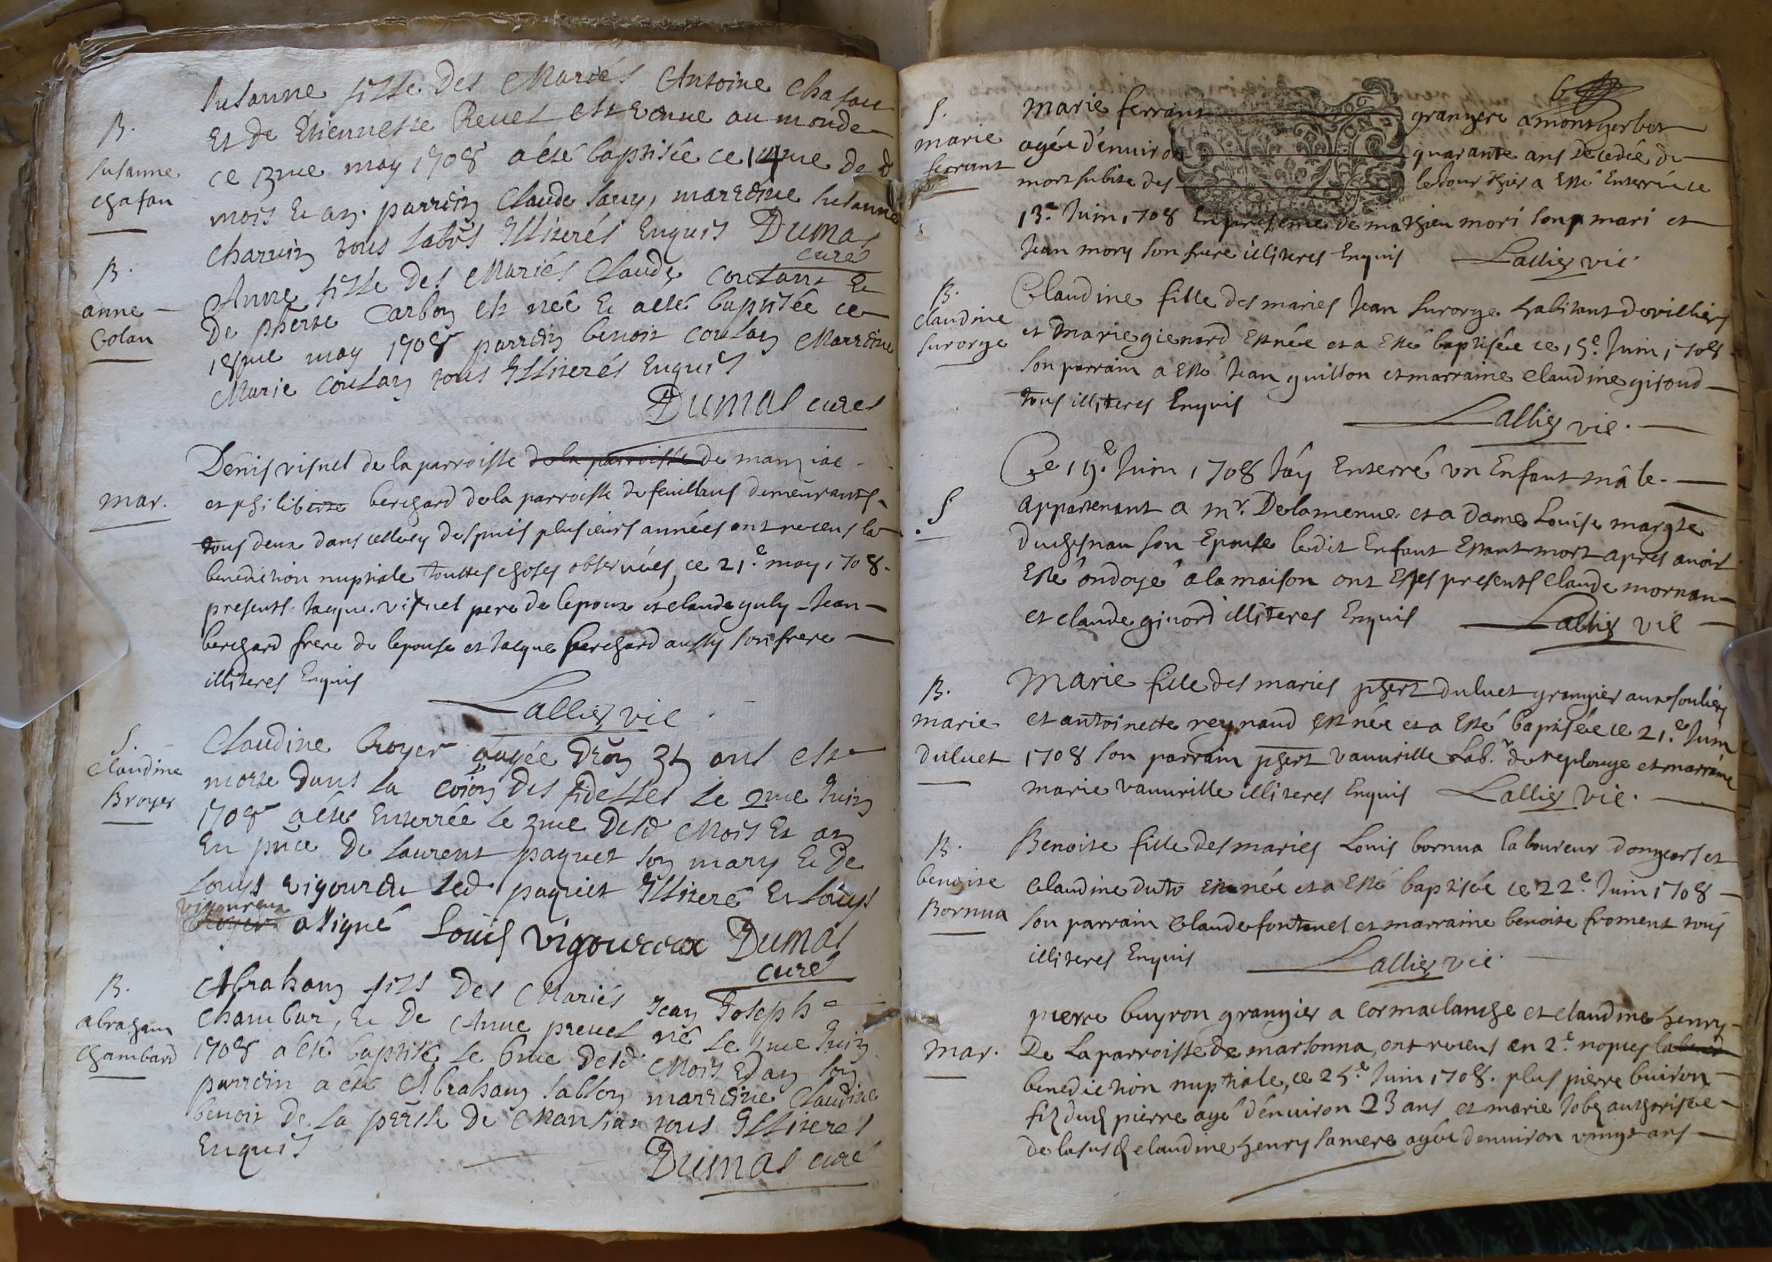 B.
susanne
chafau
Susanne fille des Mariés Antoine chafau
Et de Etiennette Revel est venue au monde
ce 13me may 1708 a été baptisée ce 14me de d
mois et an. parrein Claude Savy, marreine Susanne
charvin tous sabvs Illiterés Enquis Dumas
curé
B.
anne
Colan
Anne fille des Mariés Claude coulant Et
De phberte Carbon est née Et a esté baptisée ce
18me may 1708 parrein benoit coulan Marreine
Marie coulan tous Illiterés Enquis
Dumas curé
mar.
Denis visnel de la parroisse de la parroisse de manziat
et philiberte berchard de la parroisse de feuillans demeurants
tous deux dans celle cy despuis plusieurs années ont receus la
benediction nuptiale touttes choses observées, ce 21.e may 1708.
presents Jacque visnel pere de lepoux et claude guly Jean
berchard frere de lepouse et Jacque berchard aussy son frere
illiteres Enquis
Lallier vic.
S.
Claudine
Broyer
Claudine broyer augée dron 35 ans est
morte dans la coion des fidelles le 2me Juin
1708 a esté Enterrée le 3me dud Mois Et an
En pnce De Laurent paquet son mary Et de
Louys vigoureu led paquet Illiteré Et Louys
vigoureux
a signé Louis vigoureux Dumas
curé
B.
abraham
chambard
Abraham fils Des Mariés Jean Joseph
Chambar, Et De Anne prevel né le 5me Juin
1708 a esté baptisé le 6me dud Mois Et an son
parrein a été Abraham sablon marreine Claudine
benoit de la pñsse de Mansiat tous Illiteres
Enquis
Dumas curé
6
S.
marie
ferrant
Marie ferrant grangere a montgerbet
agée d'environ quarante ans decedée de
mort subite des le jour d'hier a esté Enterrée ce
13.e Juin 1708 En presence de mathieu mori son mari et
Jean mory son frere illiteres Enquis Lallier vic.
B.
claudine
surorge
Claudine fille des maries Jean surorge habitant de villiers
et Marie gienord Est née et a Esté baptisée ce 15.e Juin 1708
son parrain a esté Jean guillon et marraine claudine giroud
tous illiteres Enquis
Lallier vic.
S.
Ce 19.e Juin 1708 J'ay Enterré un Enfant mâle
appartenant a mr. Delamenue et a dame Louise margte
duchesnau son Epouse ledit Enfant Estant mort apres avoir
Esté ondoyé a la maison ont Estes presents Claude mornan
et claude ginord illiteres Enquis Lallier vic
B.
marie
duluet
Marie fille des maries phbert duluet grangier aux souliers
et antoinette reynaud est née et a Esté baptisée ce 21.e Juin
1708 son parrain phbert vauvrille Lab.r de replonge et marraine
marie vauvrille illiteres Enquis Lallier vic.
B.
benoite
Bornua
Benoite fille des maries Louis bornua laboureur dongeors et
claudine duto Est née et a Esté baptisée ce 22.e Juin 1708
son parrain claude fontenel et marraine benoite froment tous
illiteres Enquis
Lallier vic.
mar.
pierre buyron grangier a cormaclanche et claudine henry
De La parroisse de marsonna, ont receus en 2.e nopces la
benediction nuptiale, ce 25.e Juin 1708. plus pierre buiron
fiz dud pierre agé d'environ 23 ans et marie Jobz authorisée
de la susd claudine henry sa mere agée d'environ vingt ans